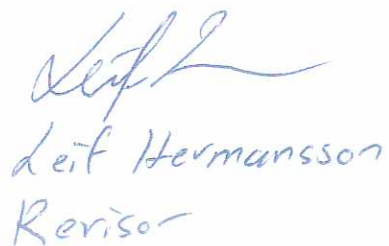 Leif Hermansson
Revisor